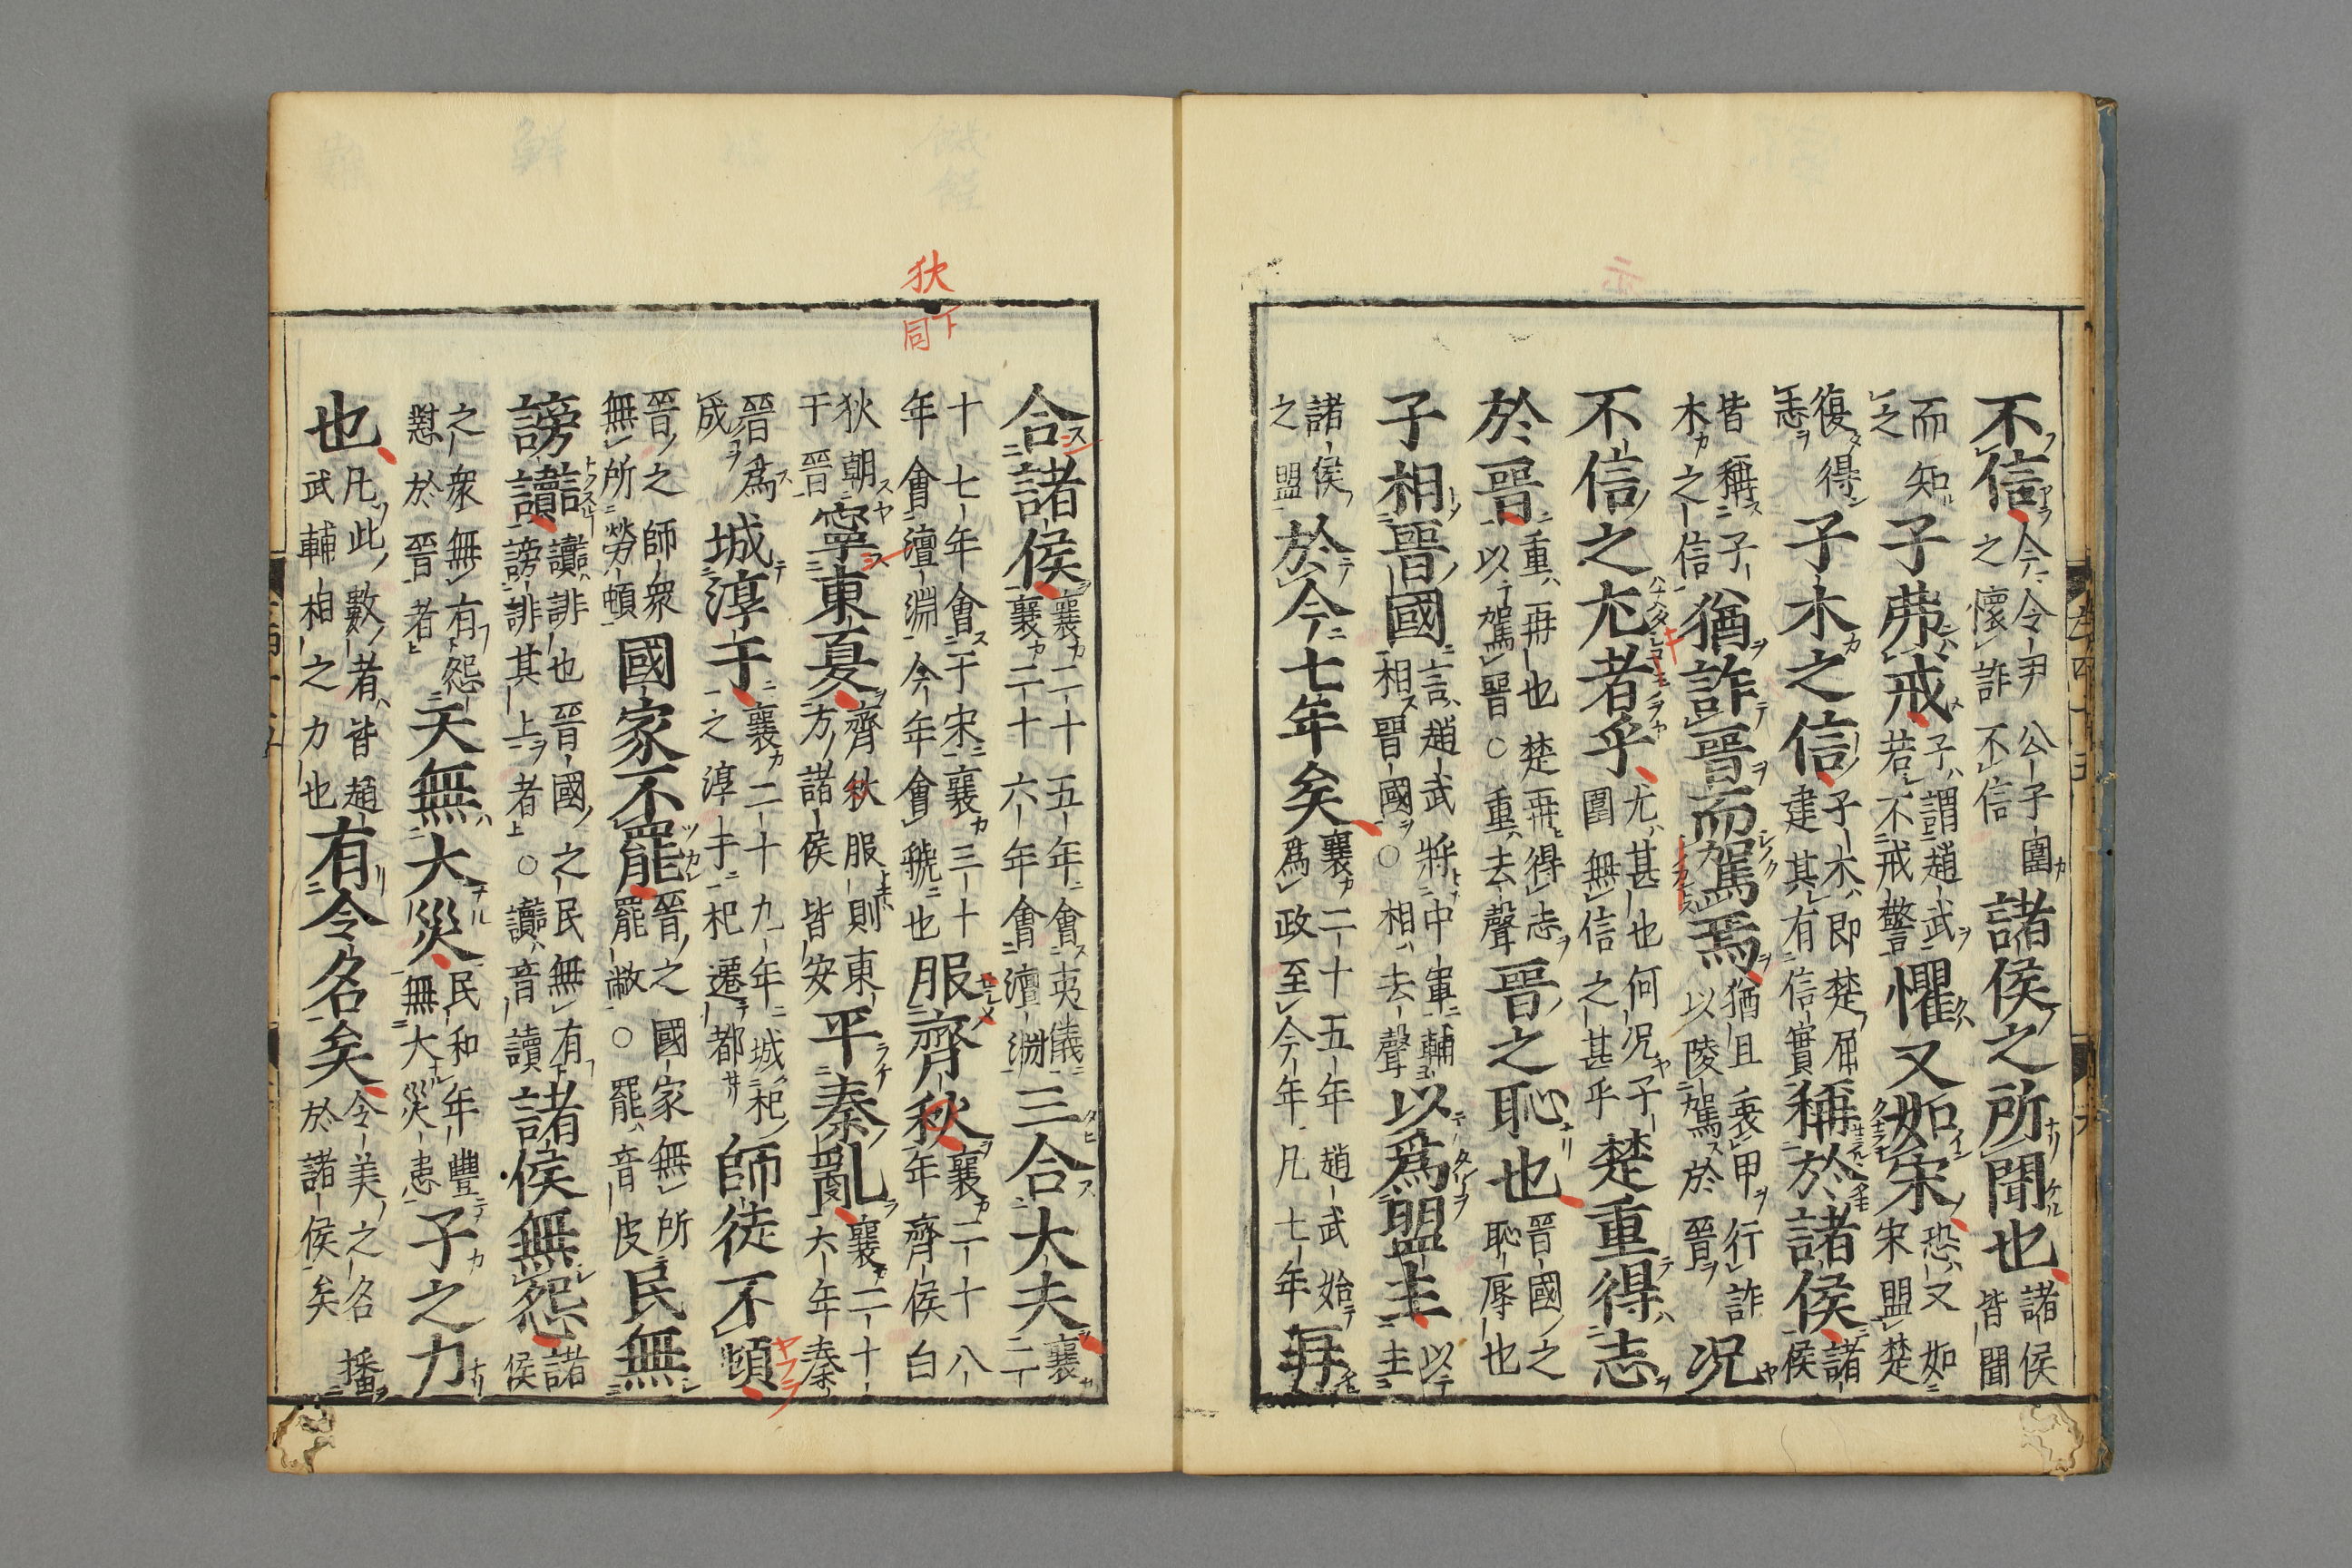 不信今令尹公子圍之懷詐不信諸侯之所聞也諸侯皆聞
而知之子弗戒子謂趙武若不戒警懼又如宋恐又如宋盟楚
復得志子木之信子木即楚屈建其有信實稱於諸侯諸侯
皆稱子木之信猶詐晉而駕焉猶且衷甲行詐以陵駕於晉况
不信之尤者乎尤甚也何况子圍無信之甚乎楚重得志
於晉重再也楚再得志以駕晉○重去聲晉之恥也晉國之恥辱也
子相晉國言趙武將中軍輔相晉國○相去聲以爲盟主以主
諸侯之盟於今七年矣襄二十五年趙武始爲政至今年凡七年再
狄下同
合諸侯襄二十五年會夷儀襄二十六年會澶淵三合大夫襄二
十七年會于宋襄三十年會澶淵今年會虢也服齊秋襄二十八年齊侯白
狄朝于晉寧東夏齊秋服則東方諸侯皆安平秦亂襄二十六年秦
晉爲成城淳于襄二十九年城杞之淳于杞遷都師徒不頓
晉之師衆無所勞頓國家不罷晉之國家無所罷敝○罷音皮民無
謗讟讟誹也晉國之民無有謗誹其上者○讟音讀諸侯無怨諸侯
之衆無有怨懟於晉者天無大災民和年豐無大災患子之力
也凡此數者皆趙武輔相之力也有令名矣令美之名播於諸侯矣